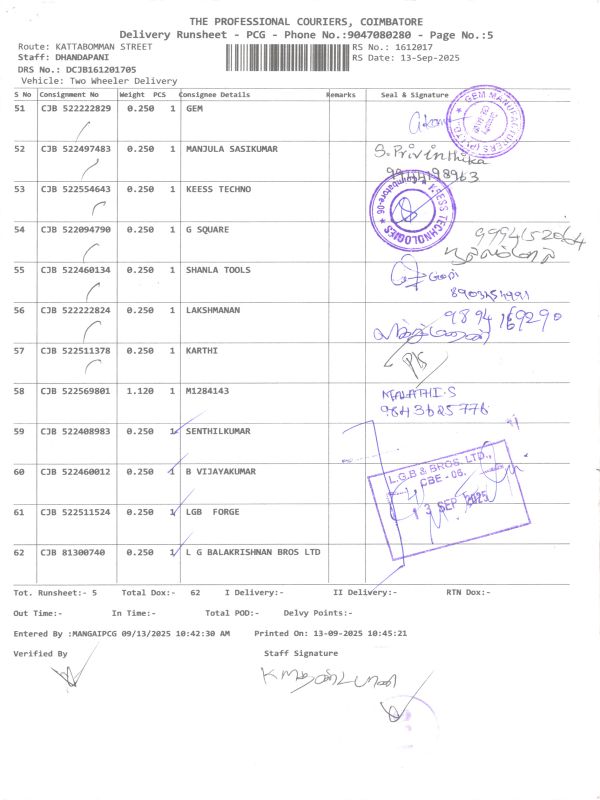 THE PROFESSIONAL COURIERS, COIMBATORE
Delivery Runsheet - PCG - Phone No.:9047080280 - Page No.:5
Route: KATTABOMMAN STREET RS No.: 1612017
Staff: DHANDAPANI RS Date: 13-Sep-2025
DRS No.: DCJB161201705
Vehicle: Two Wheeler Delivery
S No Consignment No Weight PCS Consignee Details Remarks Seal & Signature
51 CJB 522222829 0.250 1 GEM
GEM MANUFACTURERS (P) LTD
52 CJB 522497483 0.250 1 MANJULA SASIKUMAR S. Privinthika
9944198963
53 CJB 522554643 0.250 1 KEESS TECHNO
KEESS TECHNOLOGIES Coimbatore-06
54 CJB 522094790 0.250 1 G SQUARE 9994152064
55 CJB 522460134 0.250 1 SHANLA TOOLS Gopi
8903454991
56 CJB 522222824 0.250 1 LAKSHMANAN 9894169290
57 CJB 522511378 0.250 1 KARTHI
58 CJB 522569801 1.120 1 M1284143 MALATHI.S
9843625776
59 CJB 522408983 0.250 1 SENTHILKUMAR
60 CJB 522460012 0.250 1 B VIJAYAKUMAR
L.G.B & BROS. LTD.,
CBE - 06.
13 SEP 2025
61 CJB 522511524 0.250 1 LGB FORGE
62 CJB 81300740 0.250 1 L G BALAKRISHNAN BROS LTD
Tot. Runsheet:- 5 Total Dox:- 62 I Delivery:- II Delivery:- RTN Dox:-
Out Time:- In Time:- Total POD:- Delvy Points:-
Entered By :MANGAIPCG 09/13/2025 10:42:30 AM Printed On: 13-09-2025 10:45:21
Verified By Staff Signature